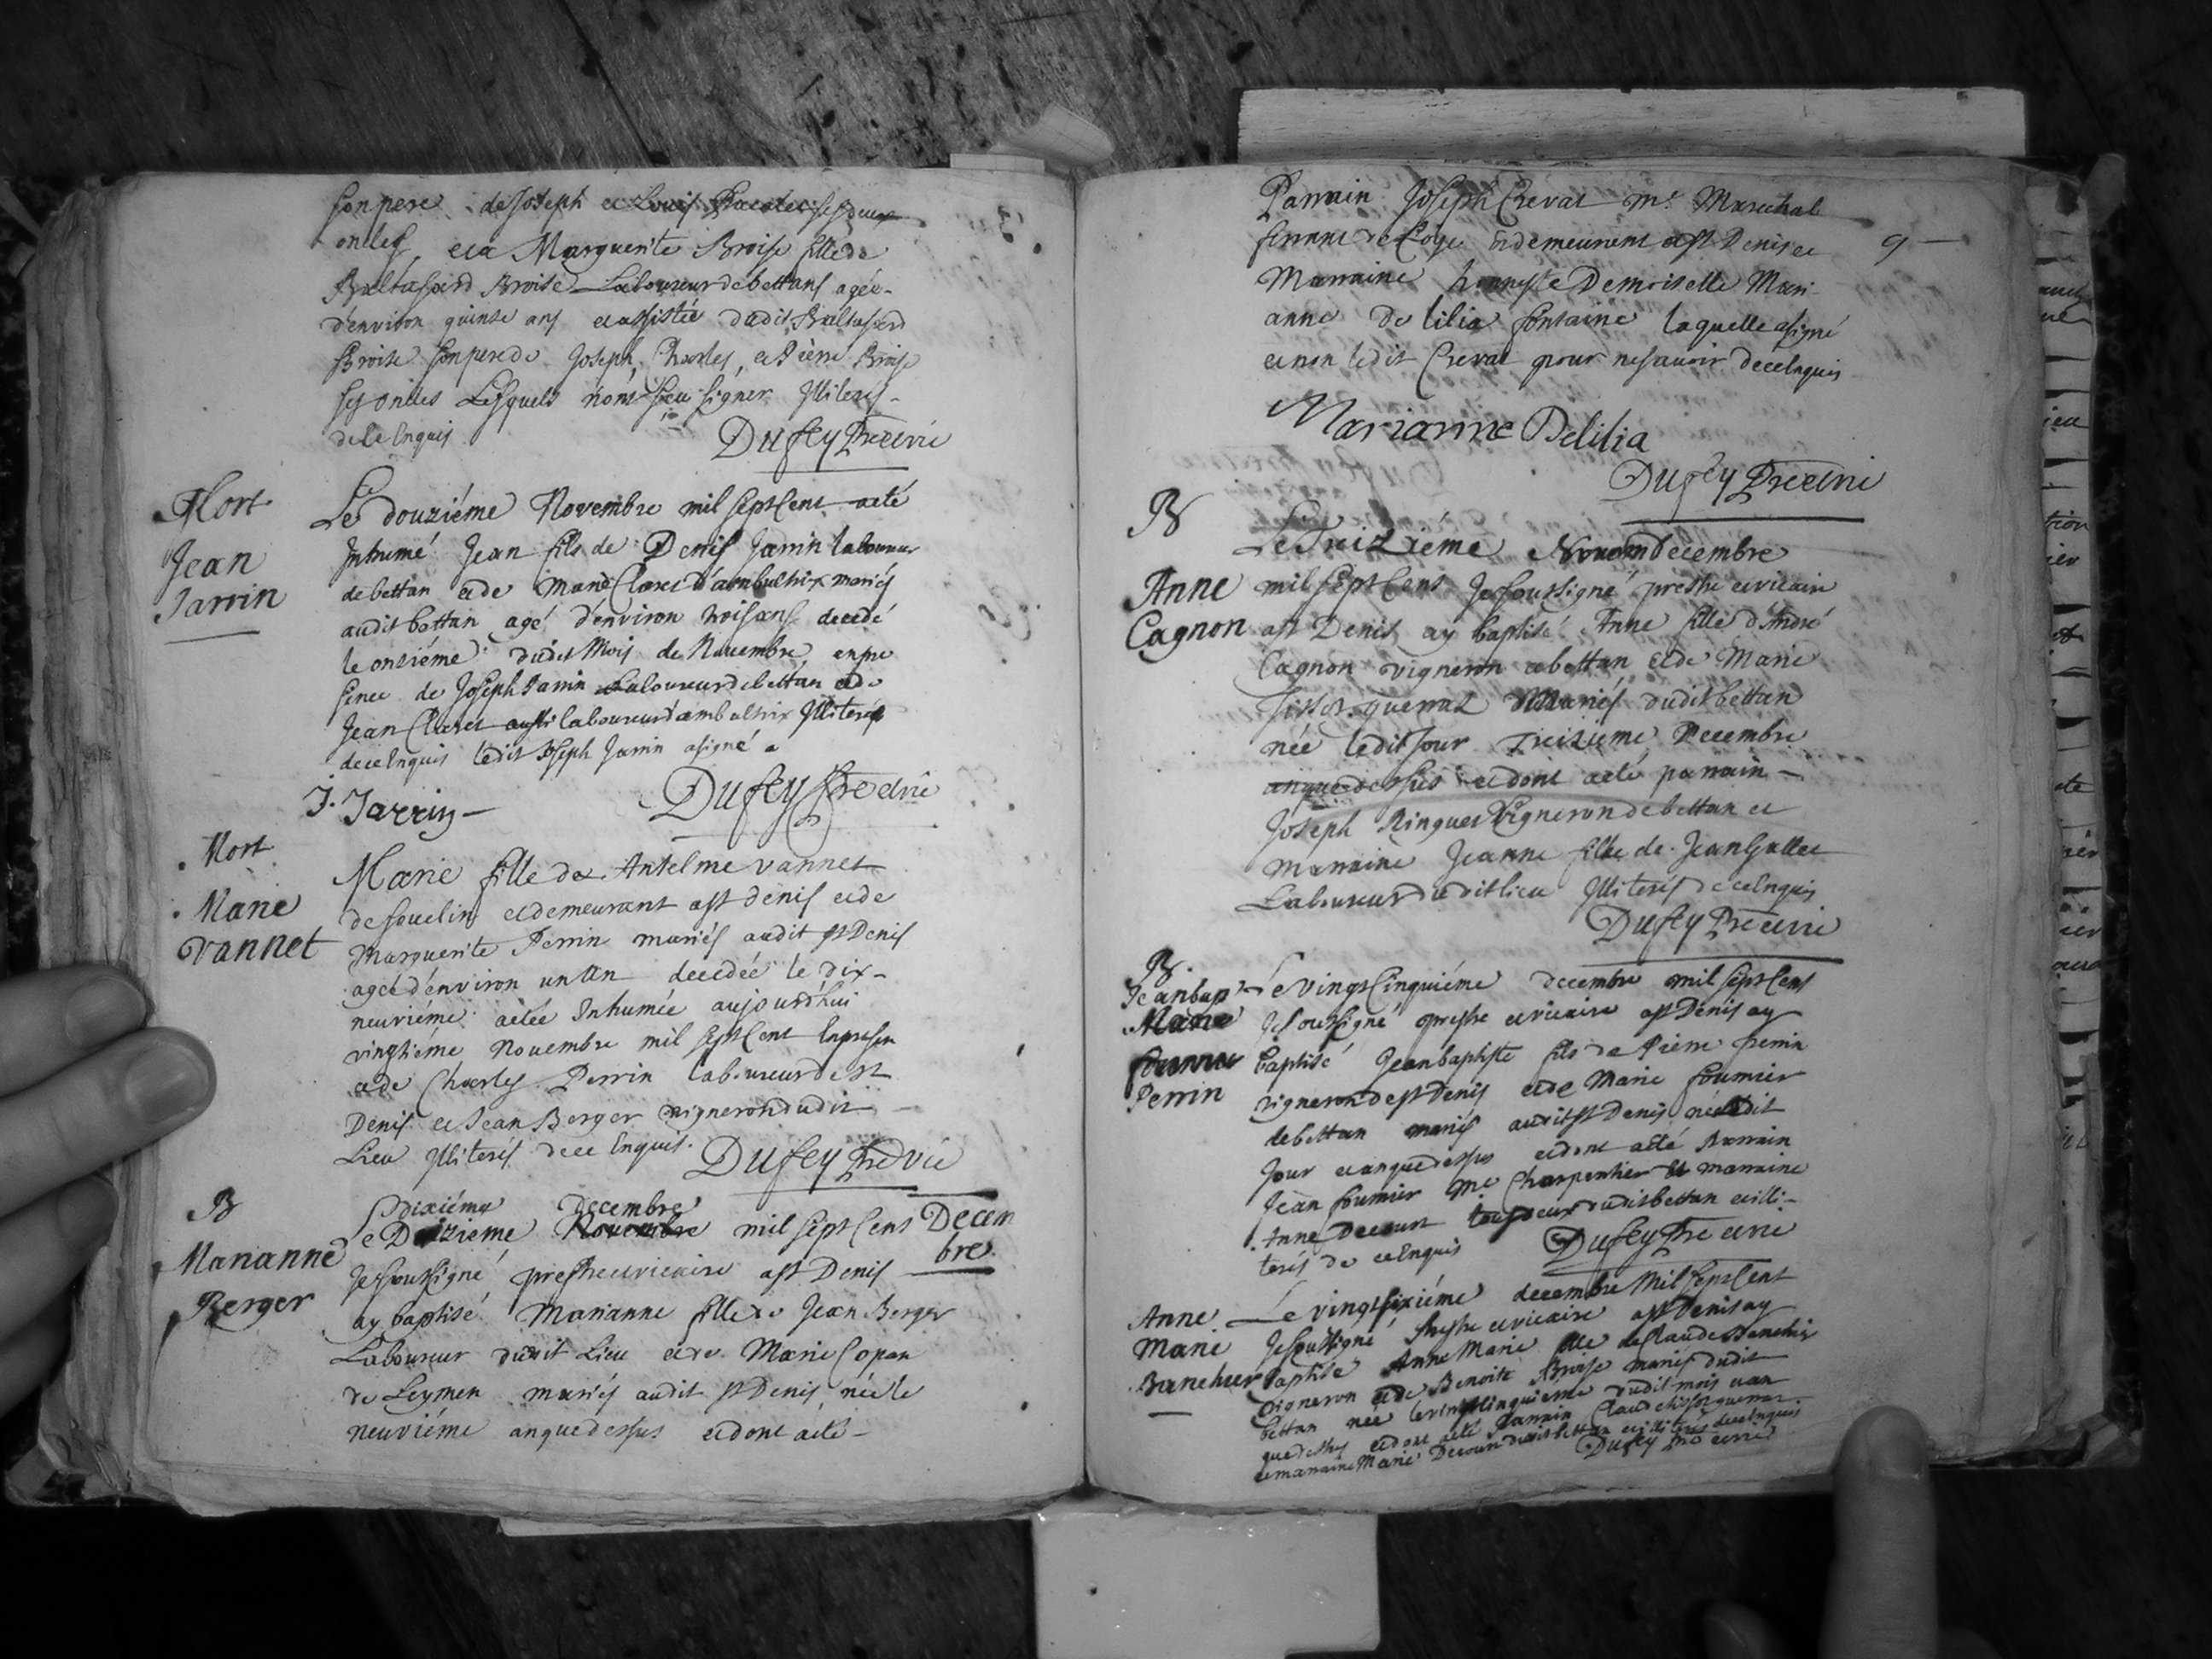 son pere de Joseph et Louis ses deux
oncles et a Marguerite Broise fille de
Baltasard Broise Laboureur de bettans agée
d'environ quinse ans et assistée dudit Baltasard
Broise son pere de Joseph, Charles, et Pierre Broise
ses oncles Lesquels n'ont sceu signer Illiterés
de ce Enquis
Dufey Pre et vic
Mort
Jean
Jarrin
Le douziéme Novembre mil sept Cent a eté
Inhumé Jean fils de Denis Jarrin laboureur
de bettan et de Marie Claret d'ambultrix mariés
audit bettan agé d'environ trois ans decedé
le onziéme dudit Mois de Novembre en pre
sence de Joseph Jarrin Laboureur de bettan et de
Jean Claret aussi laboureur d'ambultrix Illiterés
de ce Enquis ledit Joseph Jarrin a signé
J. Jarrin
Dufey Pre et vic
Mort
Marie
Vannet
Marie fille de Antelme Vannet
de souclin et demeurant a st denis et de
Marguerite Perrin mariés audit st Denis
agée d'environ un an decedée le dix-
neuviéme a etée Inhumée aujourd'hui
vingtiéme Novembre mil sept Cent En presen
ce de Charles Perrin laboureur de st
Denis et Jean Berger vigneron dudit
Lieu Illiterés de ce Enquis.
Dufey Pre vic
B
Marianne
Berger
dixiéme decembre
Le Dizieme Novembre mil sept Cent Decem
bre
Je soussigné prestre et vicaire a st Denis
ay baptisé Marianne fille de Jean Berger
Laboureur dudit Lieu et de Marie Copan
de Leymen mariés audit st Denis née le
neuviéme an que dessus et dont a eté
Parrain Joseph Chevat Mr Marechal
9
ferrant de Loye et demeurent a st Denis et
Marraine honneste Demoiselle Mari-
anne de lilia fontaine laquelle a signé
et non ledit Chevat pour ne savoir de ce Enquis
Marianne Delilia
Dufey Pre et vic
B
Anne
Cagnon
Le Treiziéme decembre
mil sept Cent Je soussigné prestre et vicaire
a st Denis ay baptisé Anne fille d'André
Cagnon vigneron de bettan et de Marie
Tissot guerraz Mariés dudit bettan
née ledit Jour Treiziéme Decembre
an que dessus et dont a eté parrain
Joseph Ringuet Vigneron de bettan et
marraine Jeanne fille de Jean Gallet
Laboureur dudit lieu Illiterés de ce Enquis
Dufey Pre et vic
B
Jeanbapt
Perrin
Le vingt Cinquiéme decembre mil sept Cent
Je soussigné prestre et vicaire a st Denis ay
baptisé Jean baptiste fils de Pierre Perrin
vigneron de st Denis et de Marie fournier
de bettan mariés audit st Denis né ledit
Jour et an que dessus et dont a eté Parrain
Jean fournier Me Charpentier et marraine
Anne Decourt dudit bettan et illi-
terés de ce Enquis
Dufey Pre et vic
Anne
Marie
Banchier
Le vingt sixiéme decembre Mil sept Cent
Je soussigné Prestre et vicaire a st Denis ay
baptisé Anne Marie fille de Claude Banchier
vigneron et de Benoite Broise mariés dudit
bettan née le vingt Cinquieme dudit mois et an
que dessus et dont a eté Parrain Claude tissot guerraz
et marraine Marie Decourt dudit bettan et illiterés de ce Enquis
Dufey Pre et vic